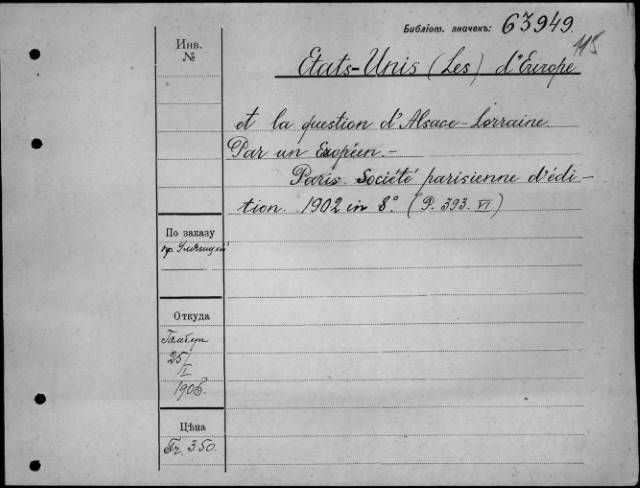 Библіот. значекъ: 63949.
115
Инв.
№
Etats-Unis (Les) d'Europe
et la question d'Alsace-Lorraine.
Par un Européen.-
Paris. Société parisienne d'édi-
tion. 1902 in 8.° (P. 393. VI)
По заказу
Откуда
25/I
1903.
Цѣна
Fr. 3 50.